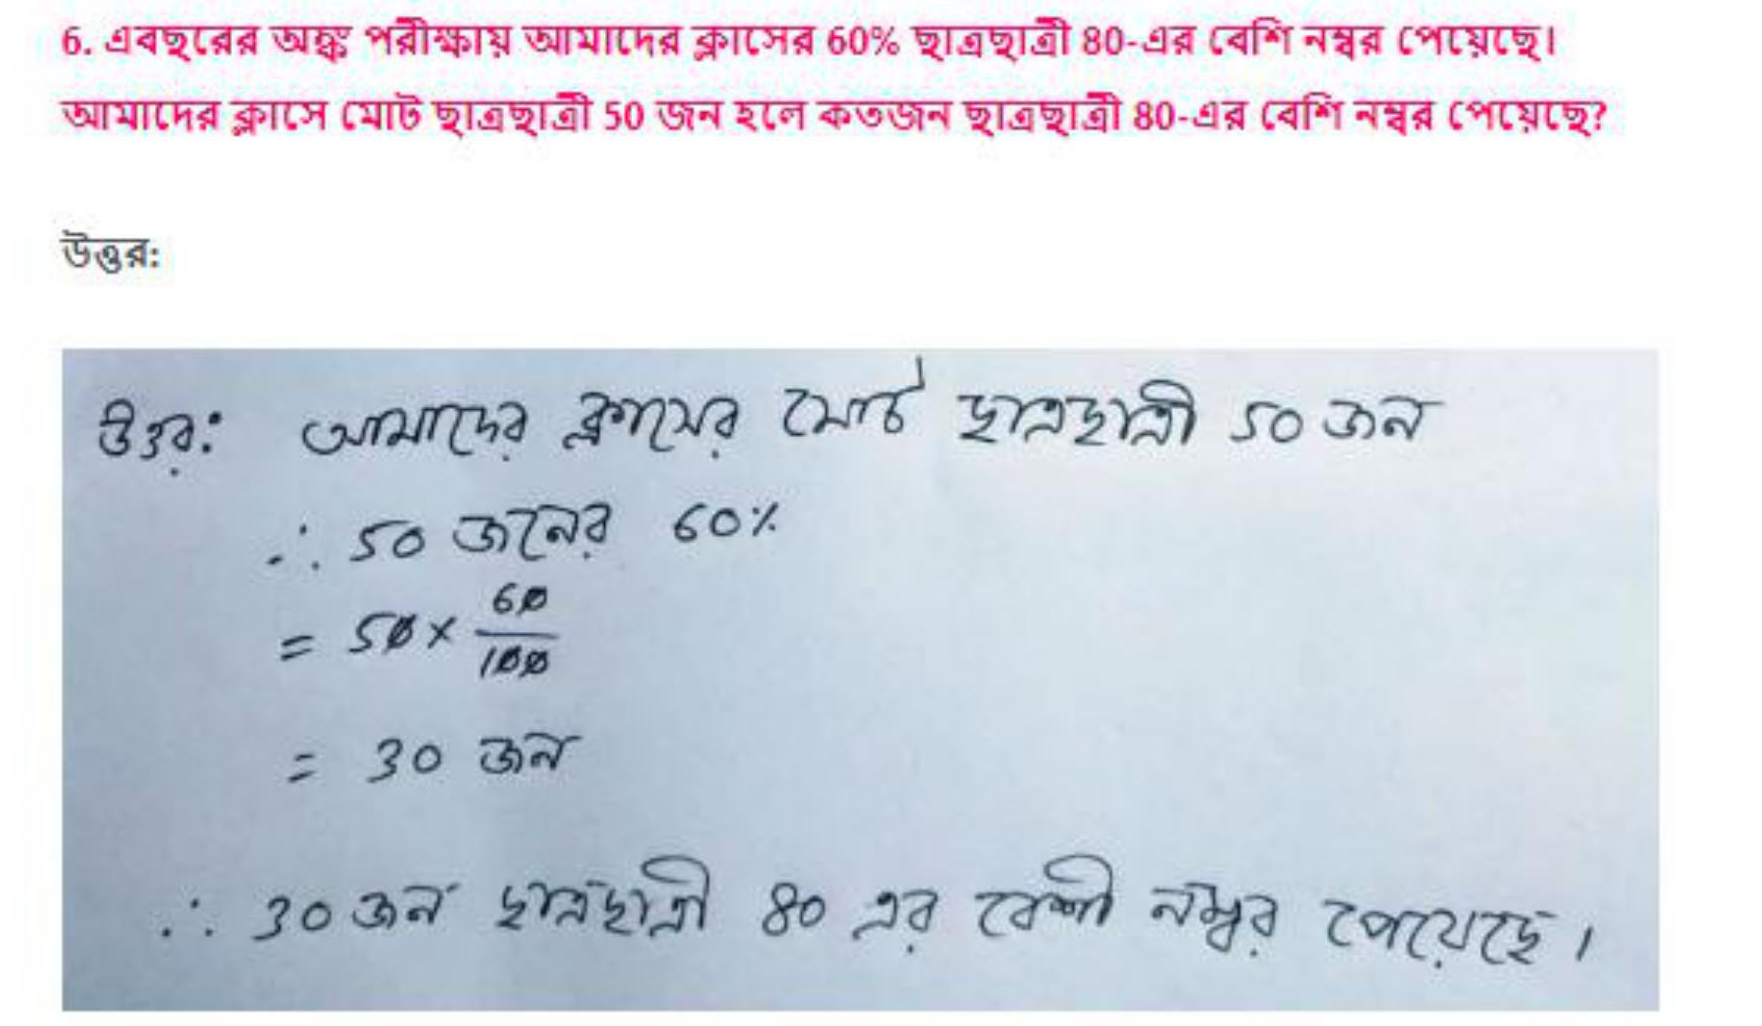 6. এবছরের অঙ্ক পরীক্ষায় আমাদের ক্লাসের 60% ছাত্রছাত্রী 80-এর বেশি নম্বর পেয়েছে।
আমাদের ক্লাসে মোট ছাত্রছাত্রী 50 জন হলে কতজন ছাত্রছাত্রী 80-এর বেশি নম্বর পেয়েছে?
উত্তর:
উত্তর: আমাদের ক্লাসের মোট ছাত্রছাত্রী 50 জন
∴ 50 জনের 60%
= 50 × 60/100
= 30 জন
∴ 30 জন ছাত্রছাত্রী 80 এর বেশী নম্বর পেয়েছে।